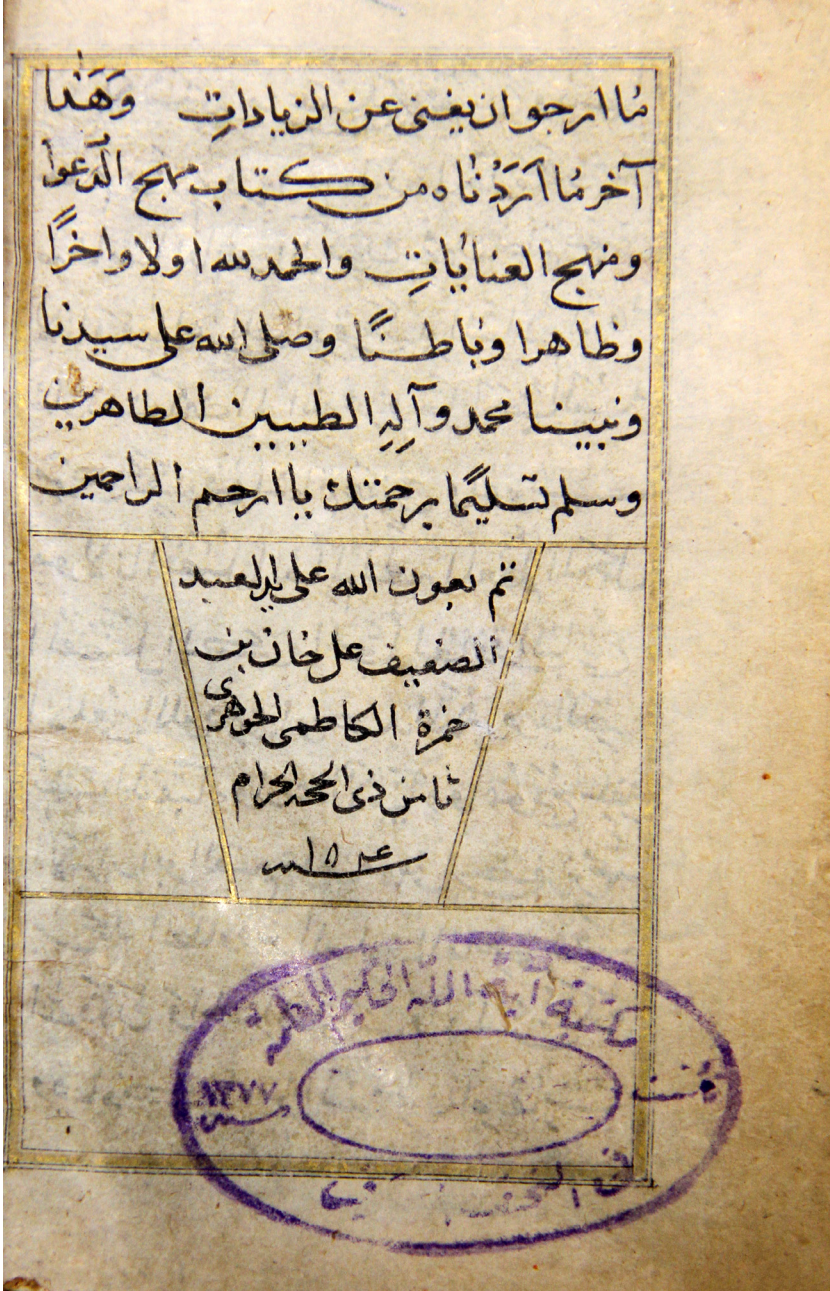 ما ارجو ان يغني عن الزيادات وهذا
آخر ما اَرَدْناه من كتاب مهج الدعوا
ومنهج العنايات والحمد لله اولا واخراً
وظاهرا وباطنًا وصلى الله على سيدنا
ونبينا محمد وآلِهِ الطيبين الطاهرين
وسلم تسليمًا برحمتك يا ارحم الراحمين
تم بعون الله على يد العبد
الضعيف على خان بن
حمزة الكاظمى الجوهرى
ثامن ذى الحجه الحرام
مكتبة آية الله الحكيم العامة
سنة ١٣٧٧
فى النجف